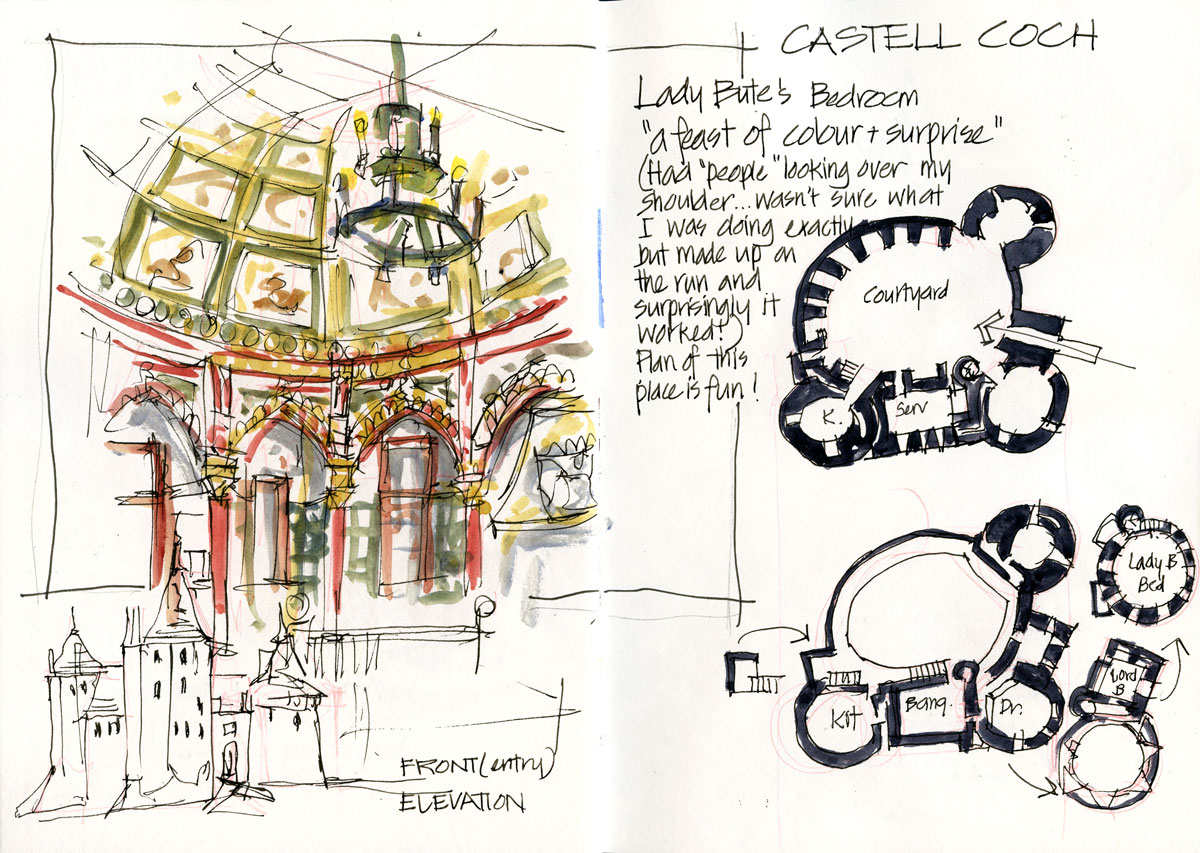 CASTELL COCH
Lady Bute's Bedroom
"a feast of colour + surprise"
(Had "people" looking over my
shoulder... wasn't sure what
I was doing exactly
but made up on
the run and
surprisingly it
worked!)
Plan of this
place is fun!
Courtyard
K.
Serv
Lady B
Bed
Lord
B
Kit
Banq.
Dr.
FRONT (entry)
ELEVATION